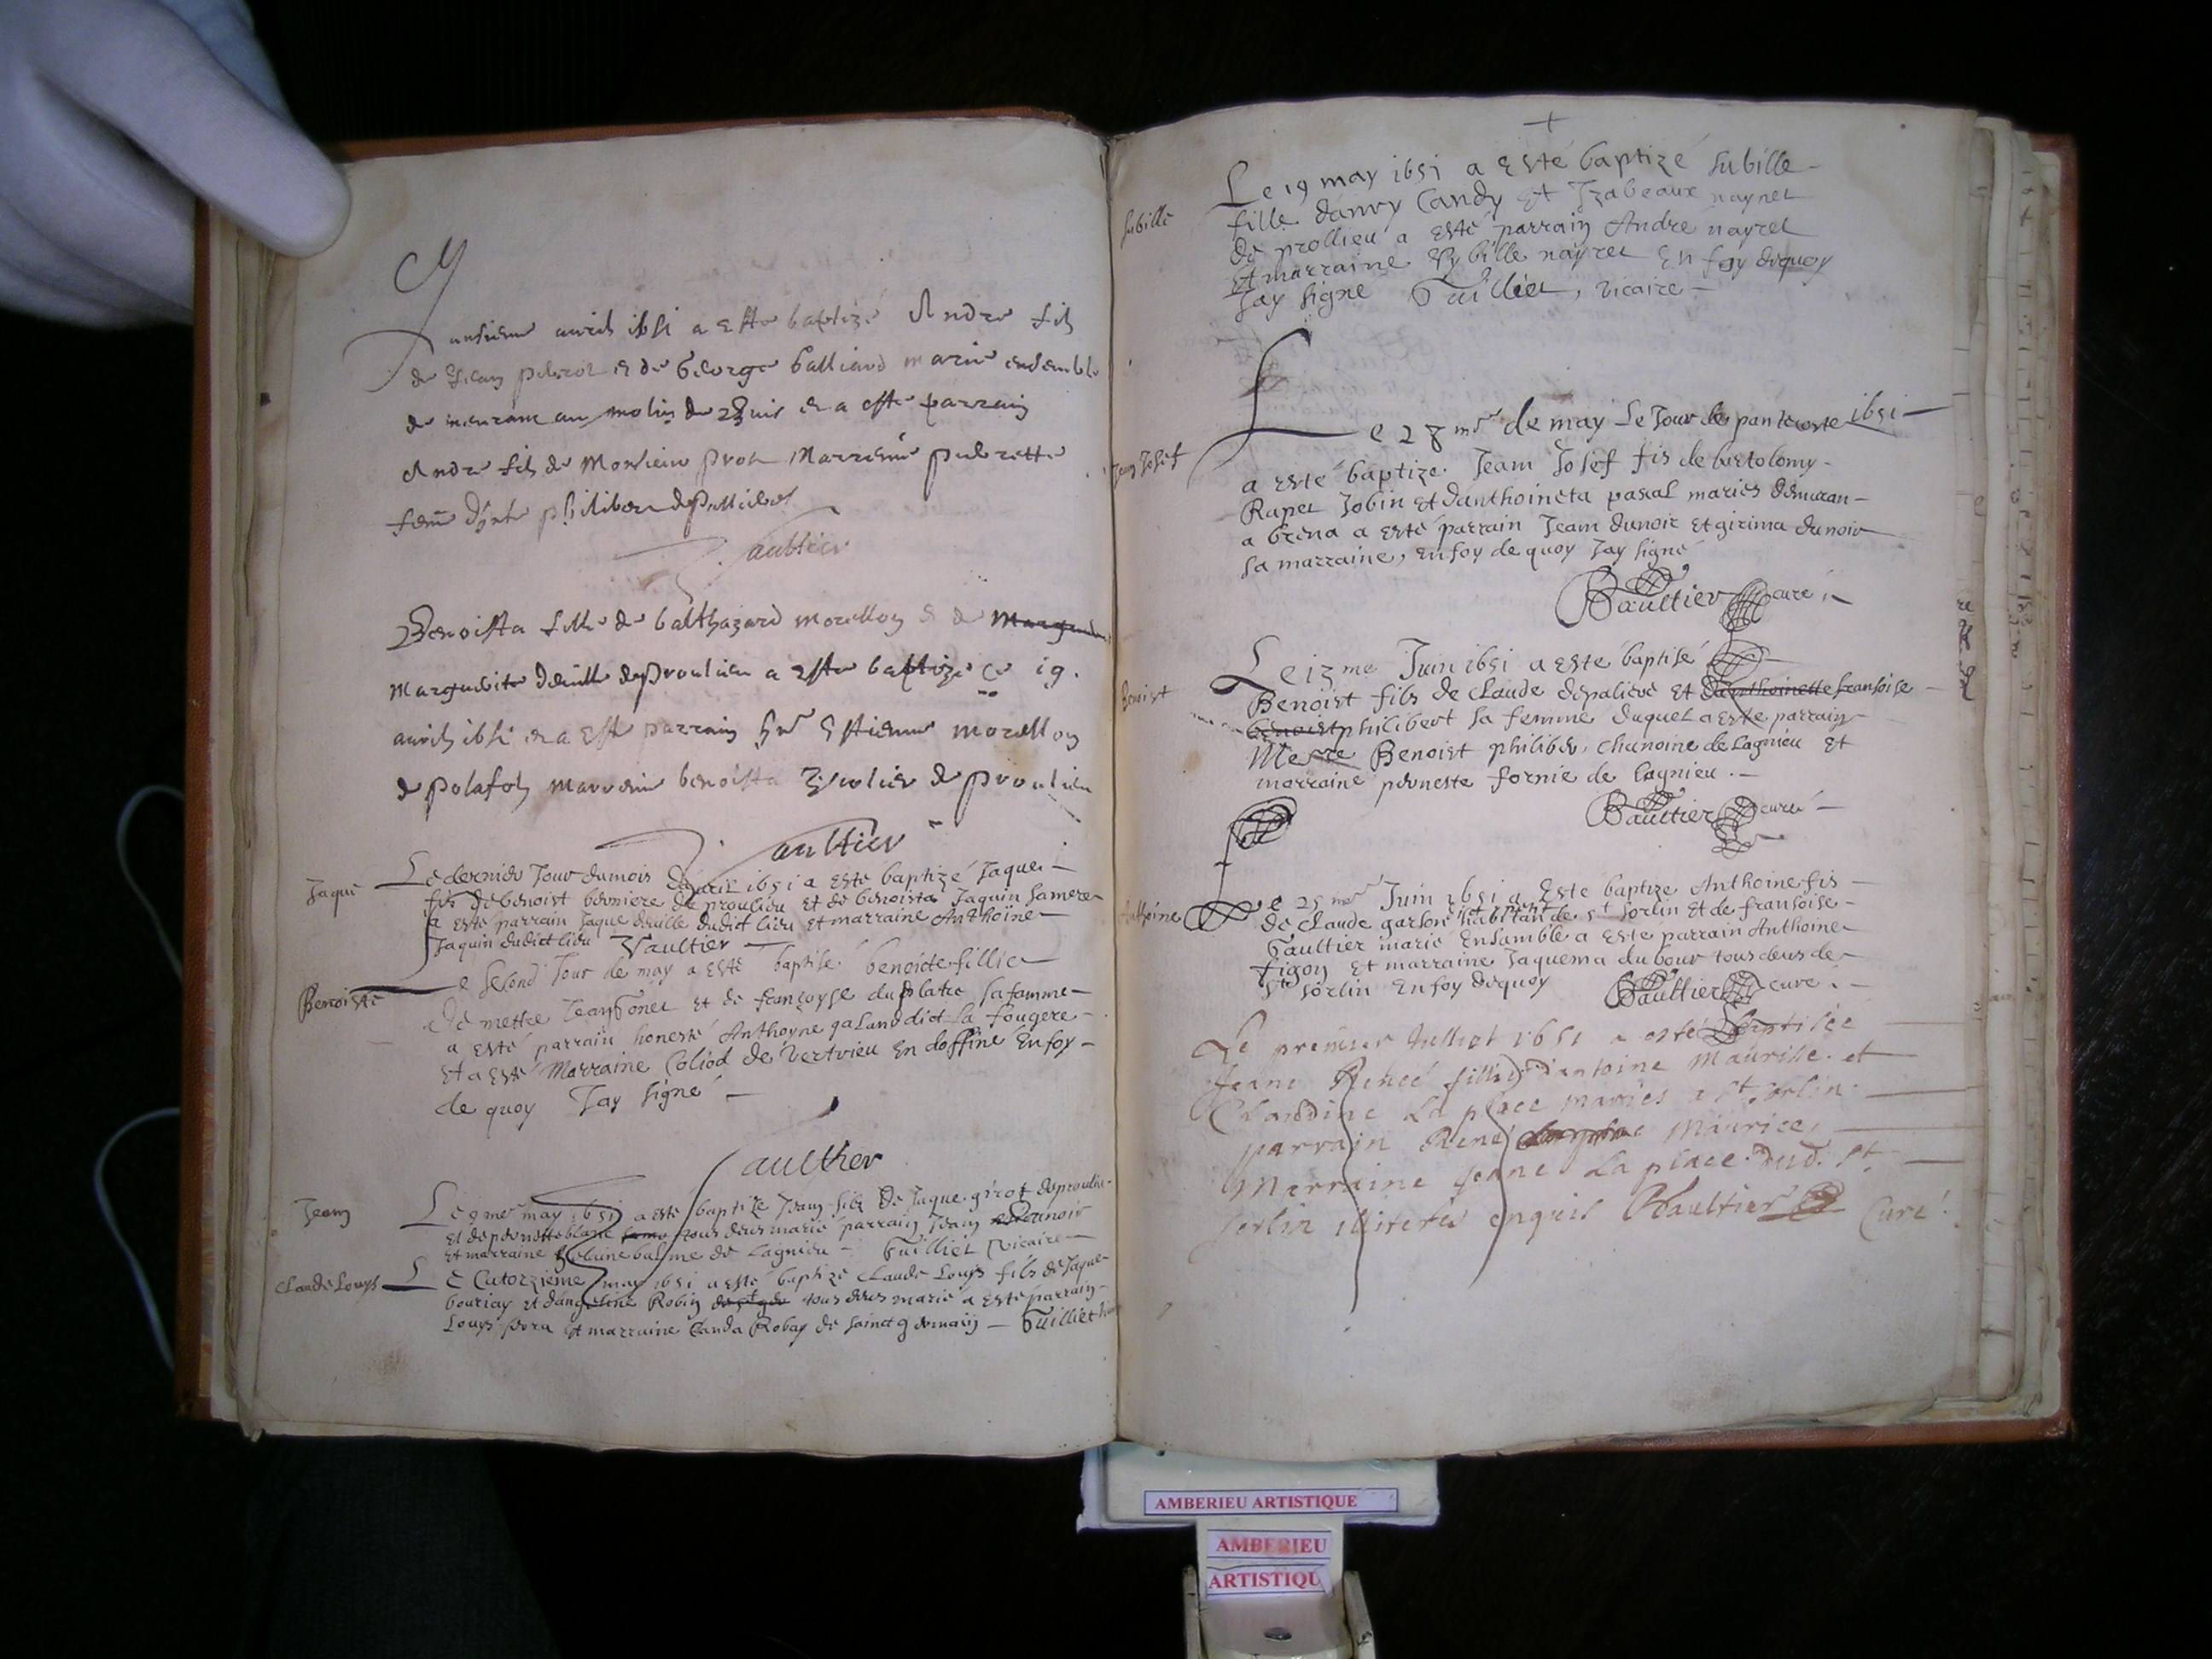 auril 1651 a este baptizé Andre fils
de et de George Galliard marié ensemble
au molin de et a este parrain
Andre fils de Monsieur Marreine pierrette
Gaultier
Benoista fille de balthazard morellon et de
Marguerite deville de proulieu a este baptizée ce 19.
auril 1651 et a este parrain Estienne morellon
de marreine benoista de proulieu
Gaultier
Jaque
Le dernier Jour du mois dauril 1651 a esté baptizé Jaque
fis de benoist berniere de proulieu et de benoista Jaquin sa mere
a esté parrain Jaque deville dudict lieu et marraine Anthoine
Jaquin dudict lieu Gaultier
Benoiste
Le second Jour de may a esté baptisé benoicte fillie
de mettre Jean Gonet et de françoyse du platre sa famme
a esté parrain honesté Anthoyne galand dict la fougere
Et a esté Marraine Coliod de vertrieu En doffiné En foy
de quoy Jay signé
Gaultier
Jean
Le 9me may 1651 a esté baptize Jean filz De Jaque girot de proulieu
et de pernette blanc tous deus marié parrain Jean
Et marraine balme de Lagnieu Guilliet vicaire
Claude Louys
Le Catorzieme may 1651 a esté baptizé Claude Louys fils de Jaque
et dangeline Robin tous deus marié a Esté parrain
Louys Et marraine Canda Robay de sainct germain Guilliet
+
Subille
Le 19 may 1651 a Esté baptizé Subille
fille danry Candy Et Izabeaux nayret
de prollieu a esté parrain André nayret
Et marraine Sybille nayret En foy dequoy
Jay signe Guilliet, vicaire
Jean Josef
Le 28me de may Le Jour de pantecoste 1651
a esté baptize. Jeam Josef fis de bartolomy
Rapet Jobin et danthoineta pascal mariés démuran
a brena a esté parrain Jeam dunoir et girima dunoir
sa marraine, en foy de quoy Jay signé
Gaultier curé
Benoist
Le 13me Juin 1651 a esté baptisé
Benoist fils de Claude depaliere et danthoinette fransoise
benoist philibert sa femme duquel a este parrain
Messre Benoist philiber, chanoine de Lagnieu et
marraine perneste fornie de lagnieu.
Gaultier curé
Anthoine
Le 25me Juin 1651 a Este baptize Anthoine fis
de Claude garson habitan de st sorlin et de fransoise
Gaultier marié Ensamble a este parrain Anthoine
figon et marraine Jaquema du bour tous deus de
St sorlin En foy dequoy Gaultier curé.
Le premier Julliet 1651 a esté baptisée
Jeane Renée fillie dantoine Maurisse. et
Claudine La place mariés a St. Sorlin
parrain René Maurice,
Marraine Jeane La place dud. St.
Sorlin illiterés enquis Gaultier Curé
AMBERIEU ARTISTIQUE
AMBERIEU
ARTISTIQU